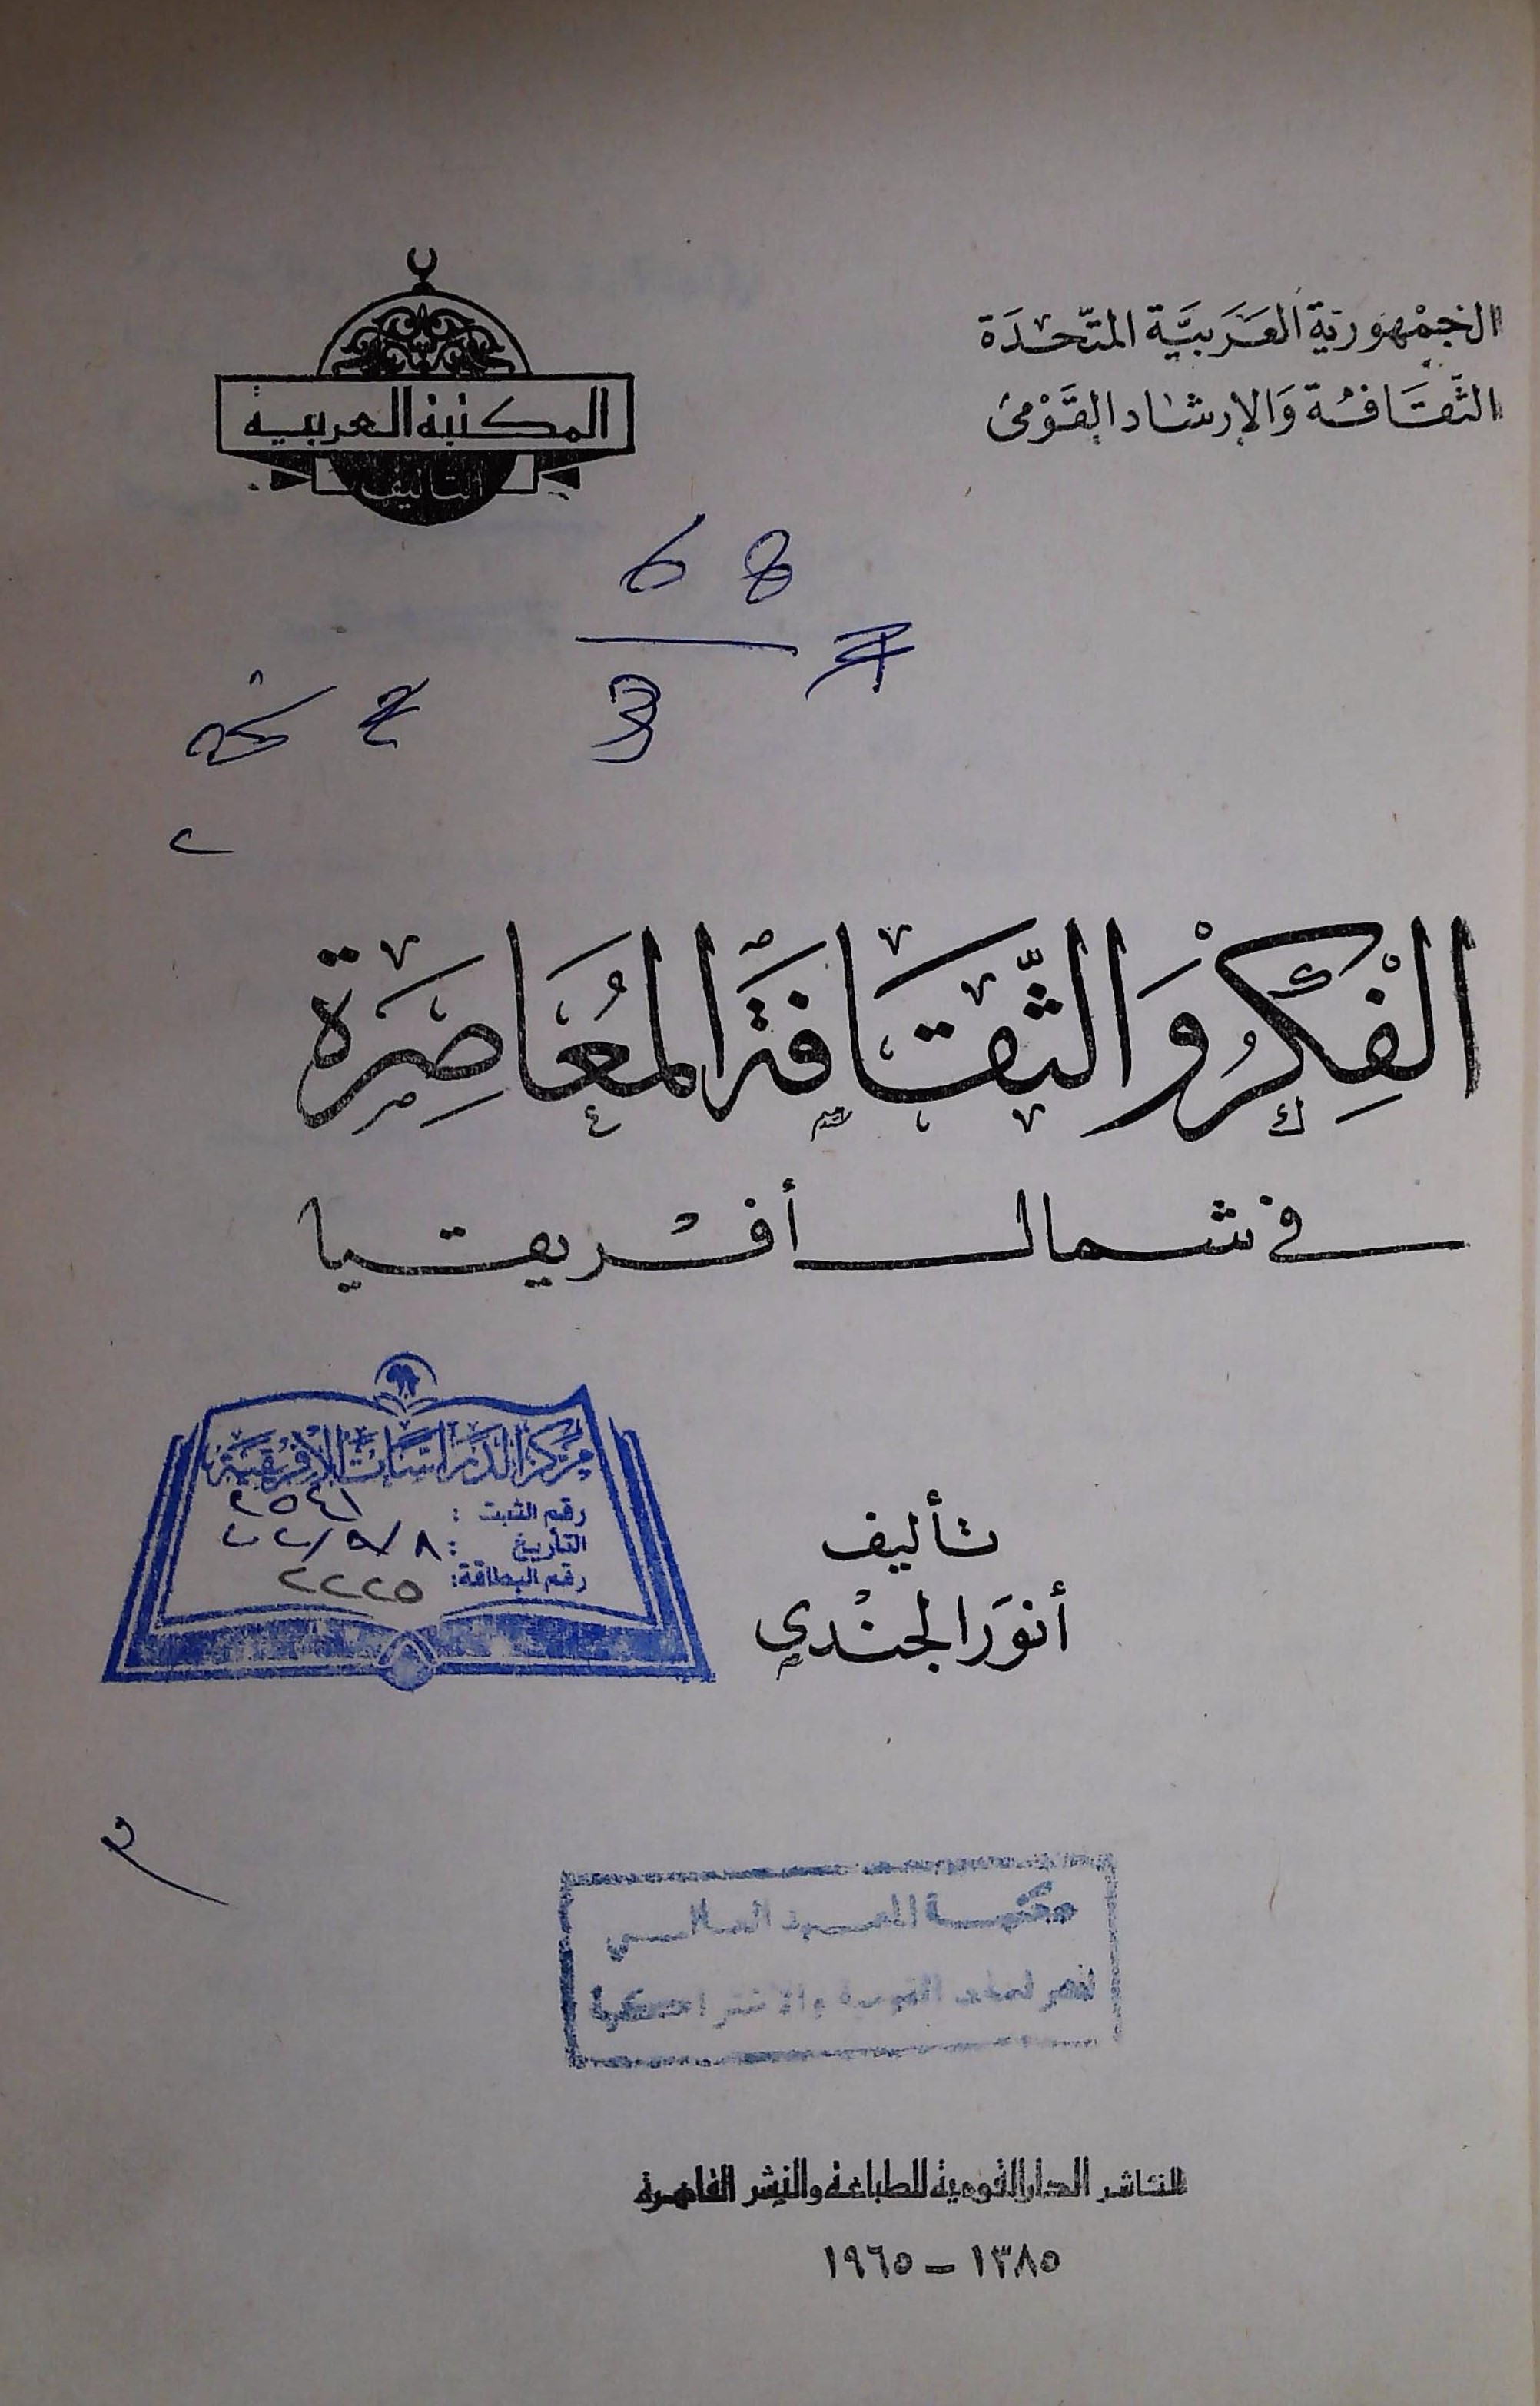 الجمهورية العربية المتحدة
الثقافة والإرشاد القومى
المكتبة العربية
التأليف
68
3
الفِكْرُ وَالثَّقَافَةُ المُعَاصِرَة
في شمال أفريقيا
مركز الدراسات الإفريقية
رقم الثبت : ٢٥٤١
التأريخ : ٨/٩/
رقم البطاقة: ٢٢٢٥
تأليف
أنور الجندى
مكتبة المعهد العالي
الناشر الدار القومية للطباعة والنشر القاهرة
١٣٨٥ - ١٩٦٥